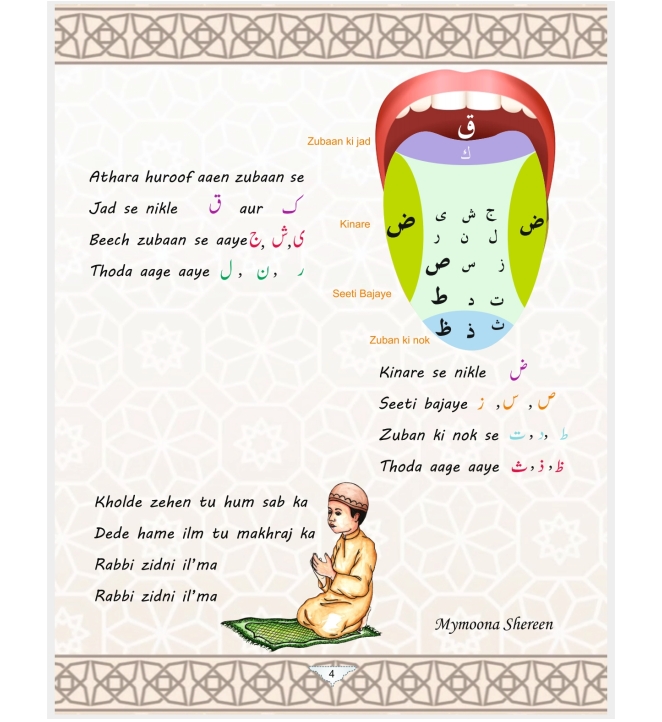 Athara huroof aaen zubaan se
Jad se nikle ق aur ک
Beech zubaan se aaye ج, ش, ی
Thoda aage aaye ل , ن , ر
Zubaan ki jad
Kinare
Seeti Bajaye
Zuban ki nok
ق
ك
ض
ج ش ی
ل ن ر
ز س ص
ت د ط
ث ذ ظ
ض
Kinare se nikle ض
Seeti bajaye ز , س , ص
Zuban ki nok se ت , د , ط
Thoda aage aaye ث , ذ , ظ
Kholde zehen tu hum sab ka
Dede hame ilm tu makhraj ka
Rabbi zidni il’ma
Rabbi zidni il’ma
Mymoona Shereen
4